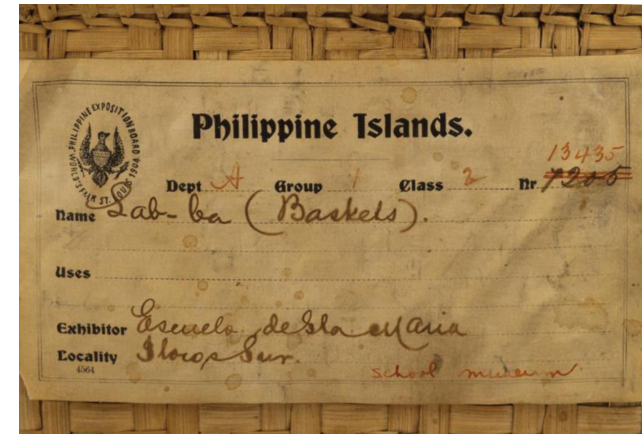 PHILIPPINE EXPOSITION BOARD
WORLD'S FAIR ST. LOUIS 1904
Philippine Islands.
13435
Dept A Group 1 Class 2 Nr 7205
Name Lab-ba (Baskets).
Uses
Exhibitor Escuela de Sta Maria
Locality Ilocos Sur.
4564
school museum